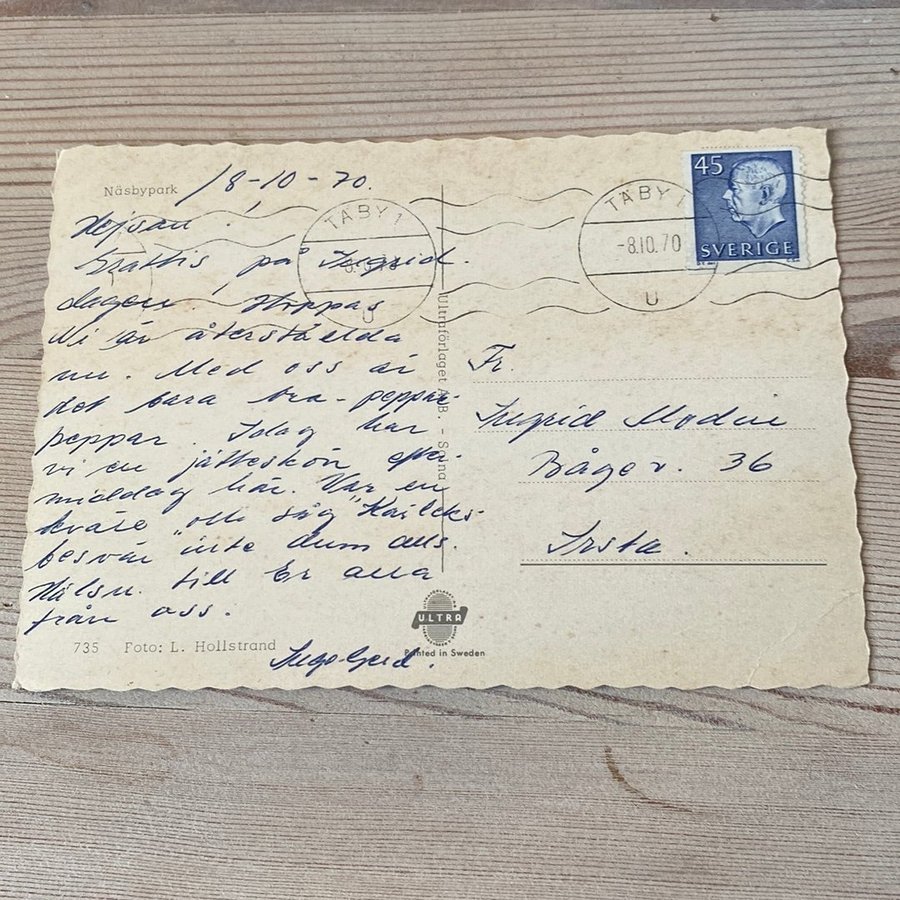 Näsbypark
/8-10-70.
Hejsan!
Grattis på Ingrid
dagen, Hoppas
Ni är återställda
nu. Med oss är
det bara bra-peppar
peppar. Idag har
vi en jätteskön efter-
middag här. Var en
kväll o såg "Kärleks-
besvär" inte dum alls.
Hälsn. till Er alla
från oss.
735 Foto: L. Hollstrand
TÄBY 1
U
Ultraförlaget A.B. - Solna
ULTRA
Printed in Sweden
TÄBY 1
-8.10.70
U
45
SVERIGE
Fr.
Ingrid Modin
Bågev. 36
Irsta.